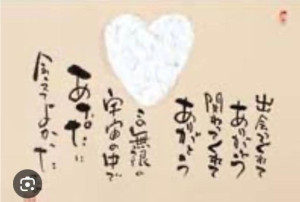 出会ってくれて
ありがとう
関わってくれて
ありがとう
この無限の
宇宙の中で
あなたに
会えてよかった